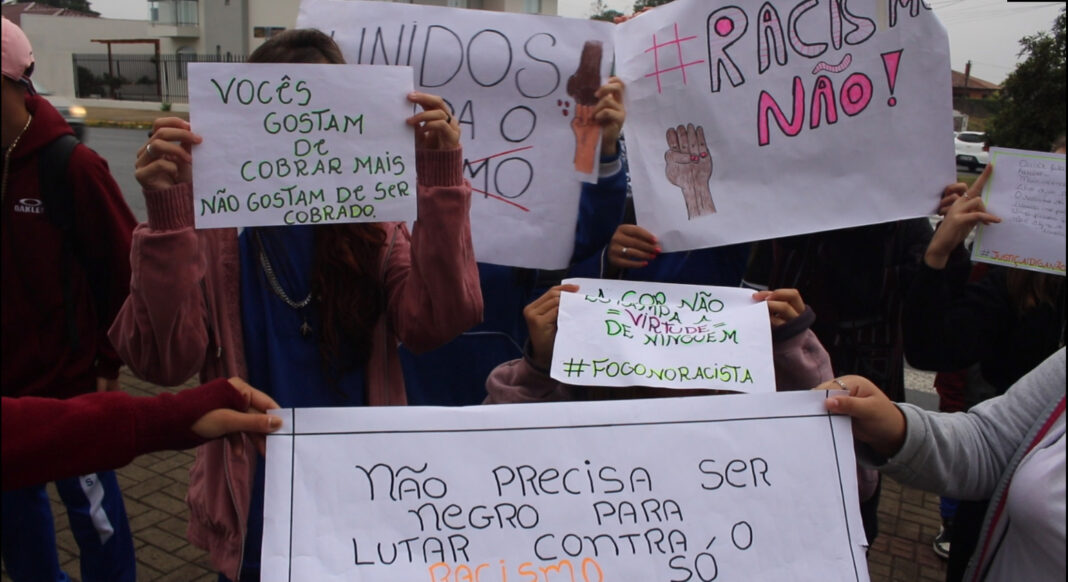 VOCÊS
GOSTAM
DE
COBRAR MAIS
NÃO GOSTAM DE SER
COBRADO.
UNIDOS
O
MO
#RACISMO
NÃO!
A COR NÃO
VIRTUDE
DE NINGUEM
#FOGONORACISTA
#JUSTIÇADIGANÃO
OAKLEY
NÃO PRECISA SER
NEGRO PARA
LUTAR CONTRA O
RACISMO SÓ